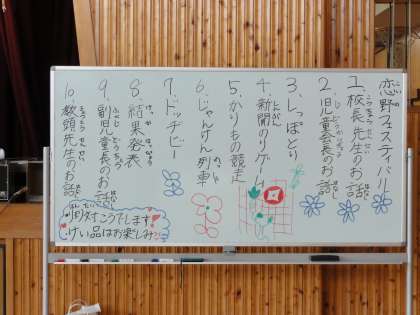 恋野フェスティバル
1. 校長先生のお話
2. 児童会長のお話
3. しっぽとり
4. 新聞のりゲーム
5. かりもの競走
6. じゃんけん列車
7. ドッヂビー
8. 結果発表
9. 副児童長のお話
10. 教頭先生のお話
対こうでします。
けい品はお楽しみ